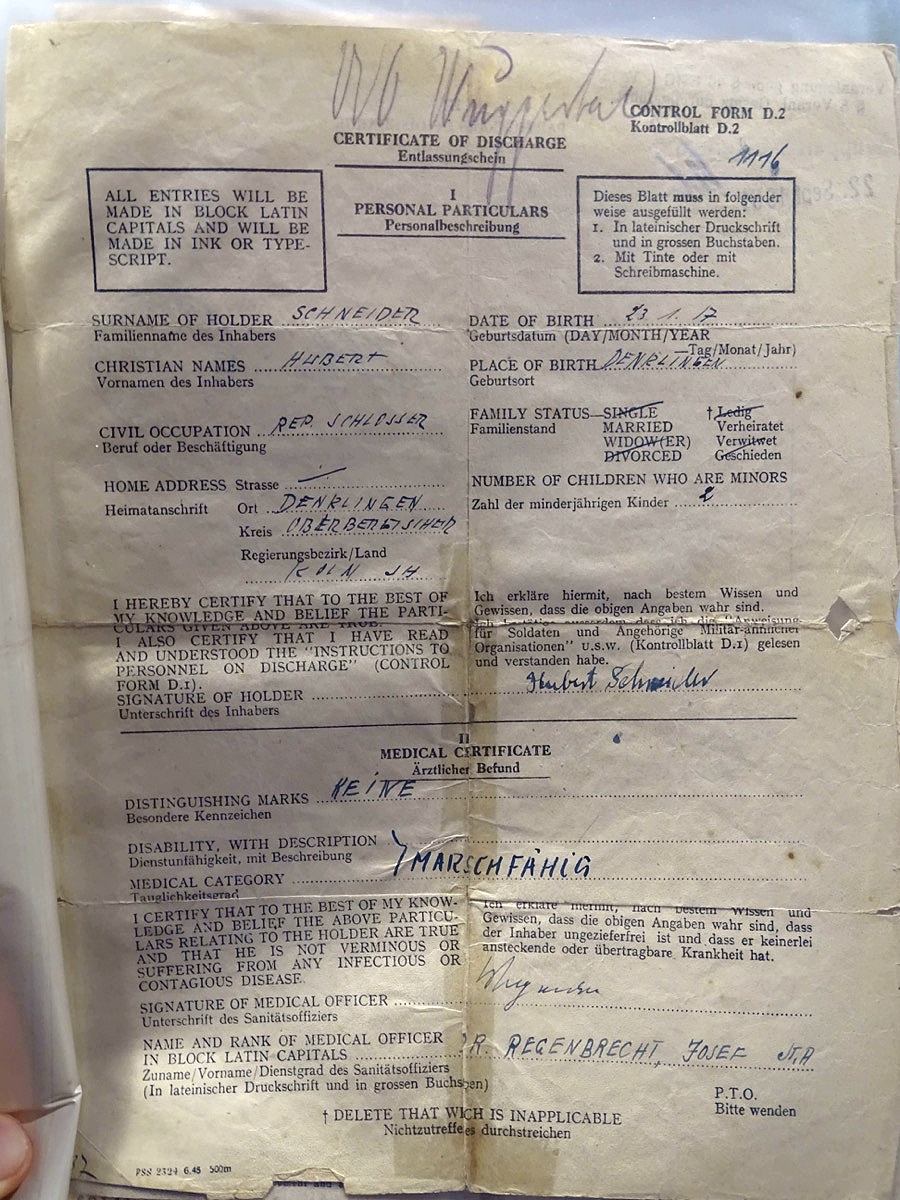 CONTROL FORM D.2
Kontrollblatt D.2
1116
CERTIFICATE OF DISCHARGE
Entlassungschein
ALL ENTRIES WILL BE
MADE IN BLOCK LATIN
CAPITALS AND WILL BE
MADE IN INK OR TYPE-
SCRIPT.
I
PERSONAL PARTICULARS
Personalbeschreibung
Dieses Blatt muss in folgender
weise ausgefüllt werden:
1. In lateinischer Druckschrift
und in grossen Buchstaben.
2. Mit Tinte oder mit
Schreibmaschine.
SURNAME OF HOLDER SCHNEIDER
Familienname des Inhabers
CHRISTIAN NAMES HUBERT
Vornamen des Inhabers
CIVIL OCCUPATION REP. SCHLOSSER
Beruf oder Beschäftigung
HOME ADDRESS Strasse
Heimatanschrift Ort DENKLINGEN
Kreis OBERBERGISCHER
Regierungsbezirk/Land
KÖLN
DATE OF BIRTH 23 1. 17
Geburtsdatum (DAY/MONTH/YEAR
Tag/Monat/Jahr)
PLACE OF BIRTH DENKLINGEN
Geburtsort
FAMILY STATUS—SINGLE † Ledig
Familienstand MARRIED Verheiratet
WIDOW(ER) Verwitwet
DIVORCED Geschieden
NUMBER OF CHILDREN WHO ARE MINORS
Zahl der minderjährigen Kinder 2
I HEREBY CERTIFY THAT TO THE BEST OF
MY KNOWLEDGE AND BELIEF THE PARTI-
CULARS GIVEN ABOVE ARE TRUE.
I ALSO CERTIFY THAT I HAVE READ
AND UNDERSTOOD THE "INSTRUCTIONS TO
PERSONNEL ON DISCHARGE" (CONTROL
FORM D.1).
SIGNATURE OF HOLDER
Unterschrift des Inhabers
Ich erkläre hiermit, nach bestem Wissen und
Gewissen, dass die obigen Angaben wahr sind.
Ich bestätige ausserdem dass ich die "Anweisung
für Soldaten und Angehörige Militär-ähnlicher
Organisationen" u.s.w. (Kontrollblatt D.1) gelesen
und verstanden habe.
Hubert Schneider
II
MEDICAL CERTIFICATE
Ärztlicher Befund
DISTINGUISHING MARKS KEINE
Besondere Kennzeichen
DISABILITY, WITH DESCRIPTION
Dienstunfähigkeit, mit Beschreibung
MARSCHFÄHIG
MEDICAL CATEGORY
Tauglichkeitsgrad
I CERTIFY THAT TO THE BEST OF MY KNOW-
LEDGE AND BELIEF THE ABOVE PARTICU-
LARS RELATING TO THE HOLDER ARE TRUE
AND THAT HE IS NOT VERMINOUS OR
SUFFERING FROM ANY INFECTIOUS OR
CONTAGIOUS DISEASE.
Ich erkläre hiermit, nach bestem Wissen und
Gewissen, dass die obigen Angaben wahr sind, dass
der Inhaber ungezieferfrei ist und dass er keinerlei
ansteckende oder übertragbare Krankheit hat.
SIGNATURE OF MEDICAL OFFICER
Unterschrift des Sanitätsoffiziers
NAME AND RANK OF MEDICAL OFFICER
IN BLOCK LATIN CAPITALS DR. REGENBRECHT, JOSEF
Zuname/Vorname/Dienstgrad des Sanitätsoffiziers
(In lateinischer Druckschrift und in grossen Buchstaben)
P.T.O.
Bitte wenden
† DELETE THAT WICH IS INAPPLICABLE
Nichtzutreffendes durchstreichen
PSS 2324 6.45 500m